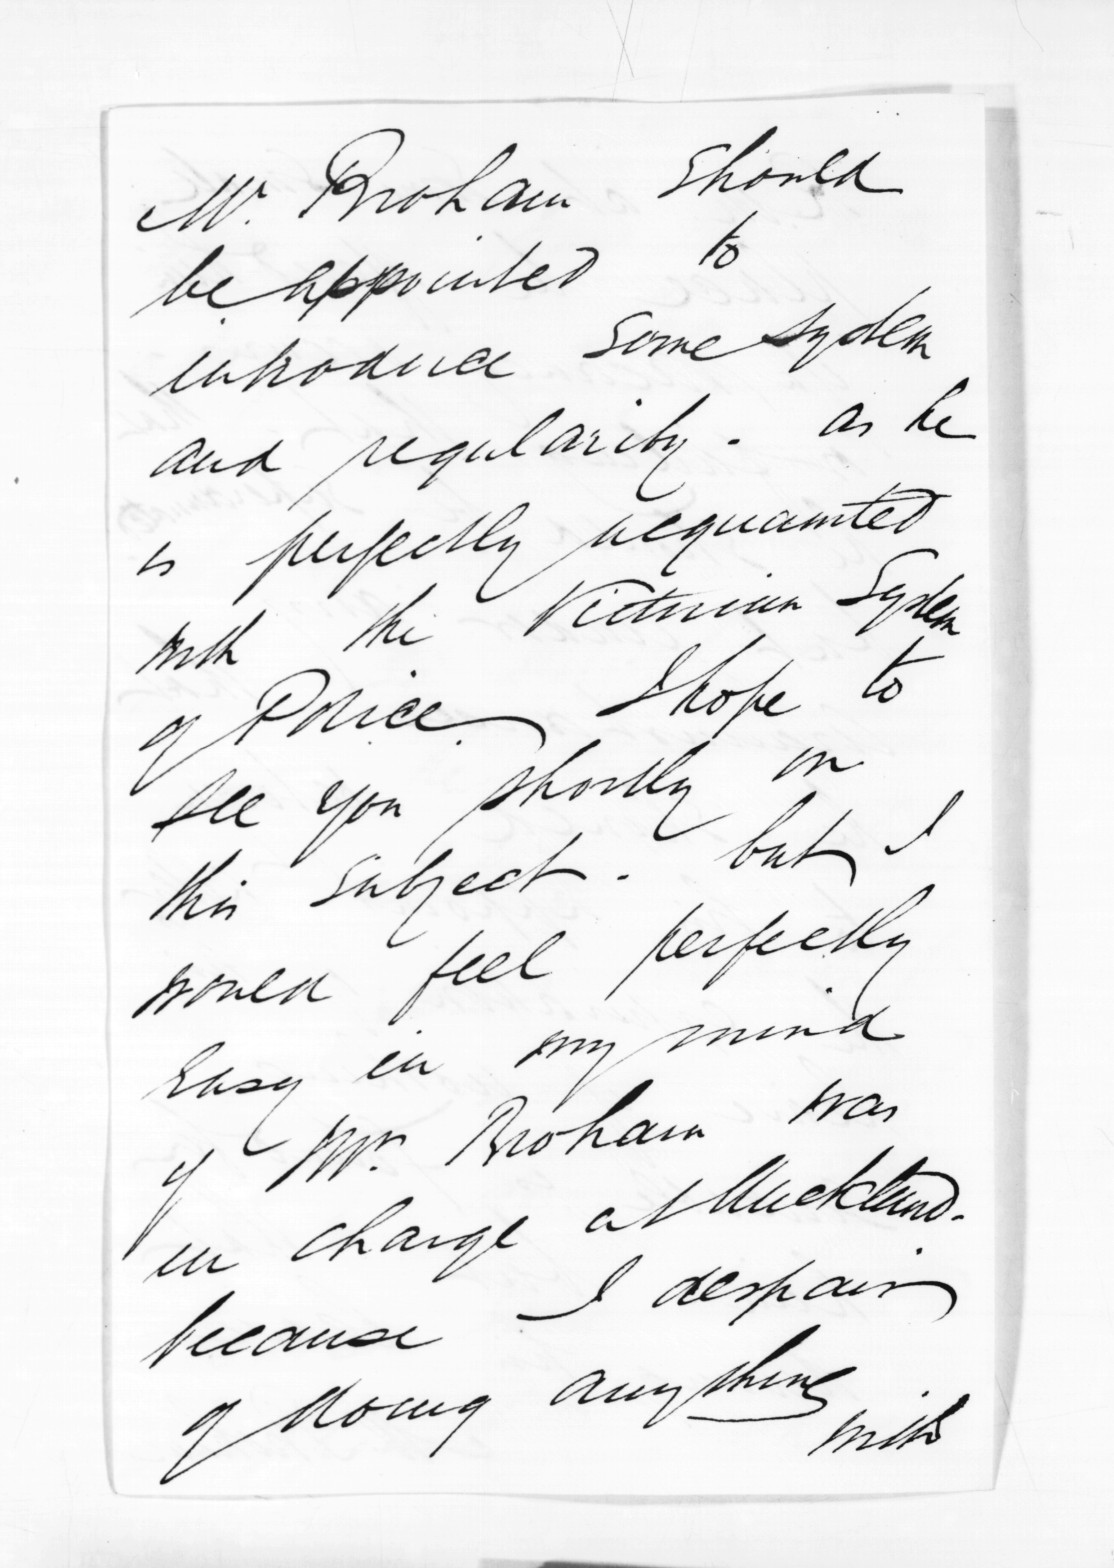 Mr. Broham should
be appointed to
introduce some system
and regularity. as he
is perfectly acquainted
with the Victorian System
of Police. I hope to
see you shortly on
this subject. but I
would feel perfectly
Easy in my mind
if Mr. Broham was
in charge at Auckland.
because I despair
of doing anything
with